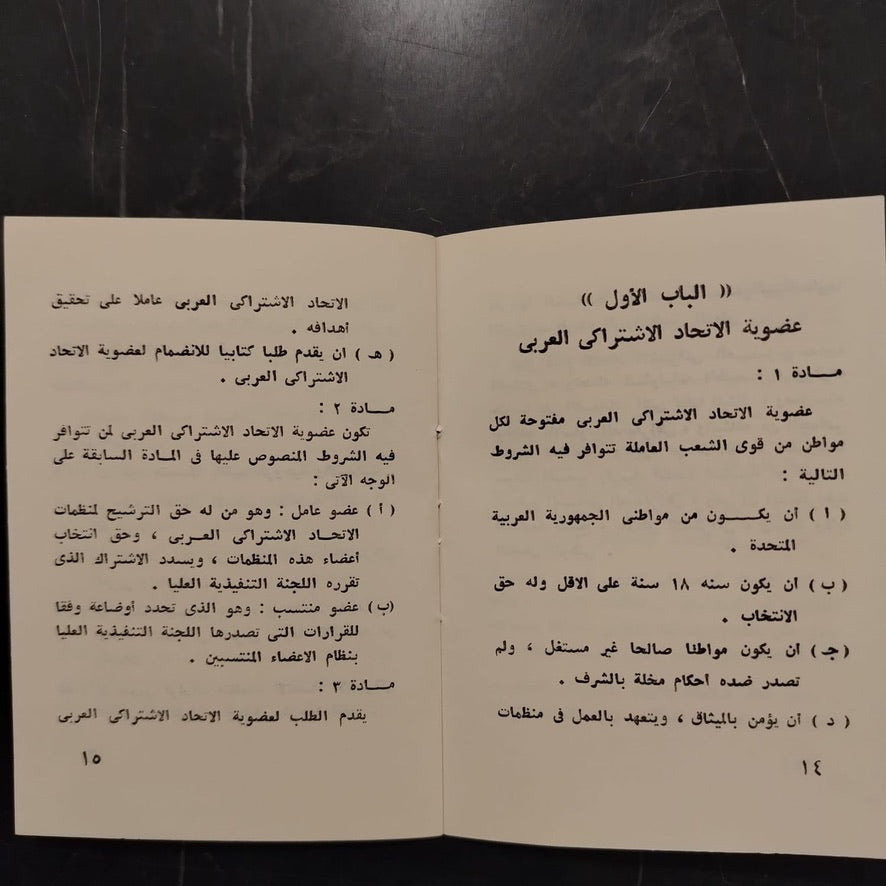 (( الباب الأول ))
عضوية الاتحاد الاشتراكى العربى
مـــادة ١ :
عضوية الاتحاد الاشتراكى العربى مفتوحة لكل
مواطن من قوى الشعب العاملة تتوافر فيه الشروط
التالية :
( ا ) أن يكـــون من مواطنى الجمهورية العربية
المتحدة .
( ب ) أن يكون سنه ١٨ سنة على الاقل وله حق
الانتخاب .
( جـ ) أن يكون مواطنا صالحا غير مستغل ، ولم
تصدر ضده أحكام مخلة بالشرف .
( د ) أن يؤمن بالميثاق ، ويتعهد بالعمل فى منظمات
١٤
الاتحاد الاشتراكى العربى عاملا على تحقيق
أهدافه .
( هـ ) ان يقدم طلبا كتابيا للانضمام لعضوية الاتحاد
الاشتراكى العربى .
مـــادة ٢ :
تكون عضوية الاتحاد الاشتراكى العربى لمن تتوافر
فيه الشروط المنصوص عليها فى المـادة السابقة على
الوجه الآتى :
( أ ) عضو عامل : وهو من له حق الترشيح لمنظمات
الاتحـاد الاشتراكى العـربى ، وحق انتخاب
أعضاء هذه المنظمات ، ويسدد الاشتراك الذى
تقرره اللجنة التنفيذية العليا .
(ب) عضو منتسب : وهو الذى تحدد أوضاعة وفقا
للقرارات التى تصدرها اللجنة التنفيذية العليا
بنظام الاعضاء المنتسبين .
مـــادة ٣ :
يقدم الطلب لعضوية الاتحاد الاشتراكى العربى
١٥